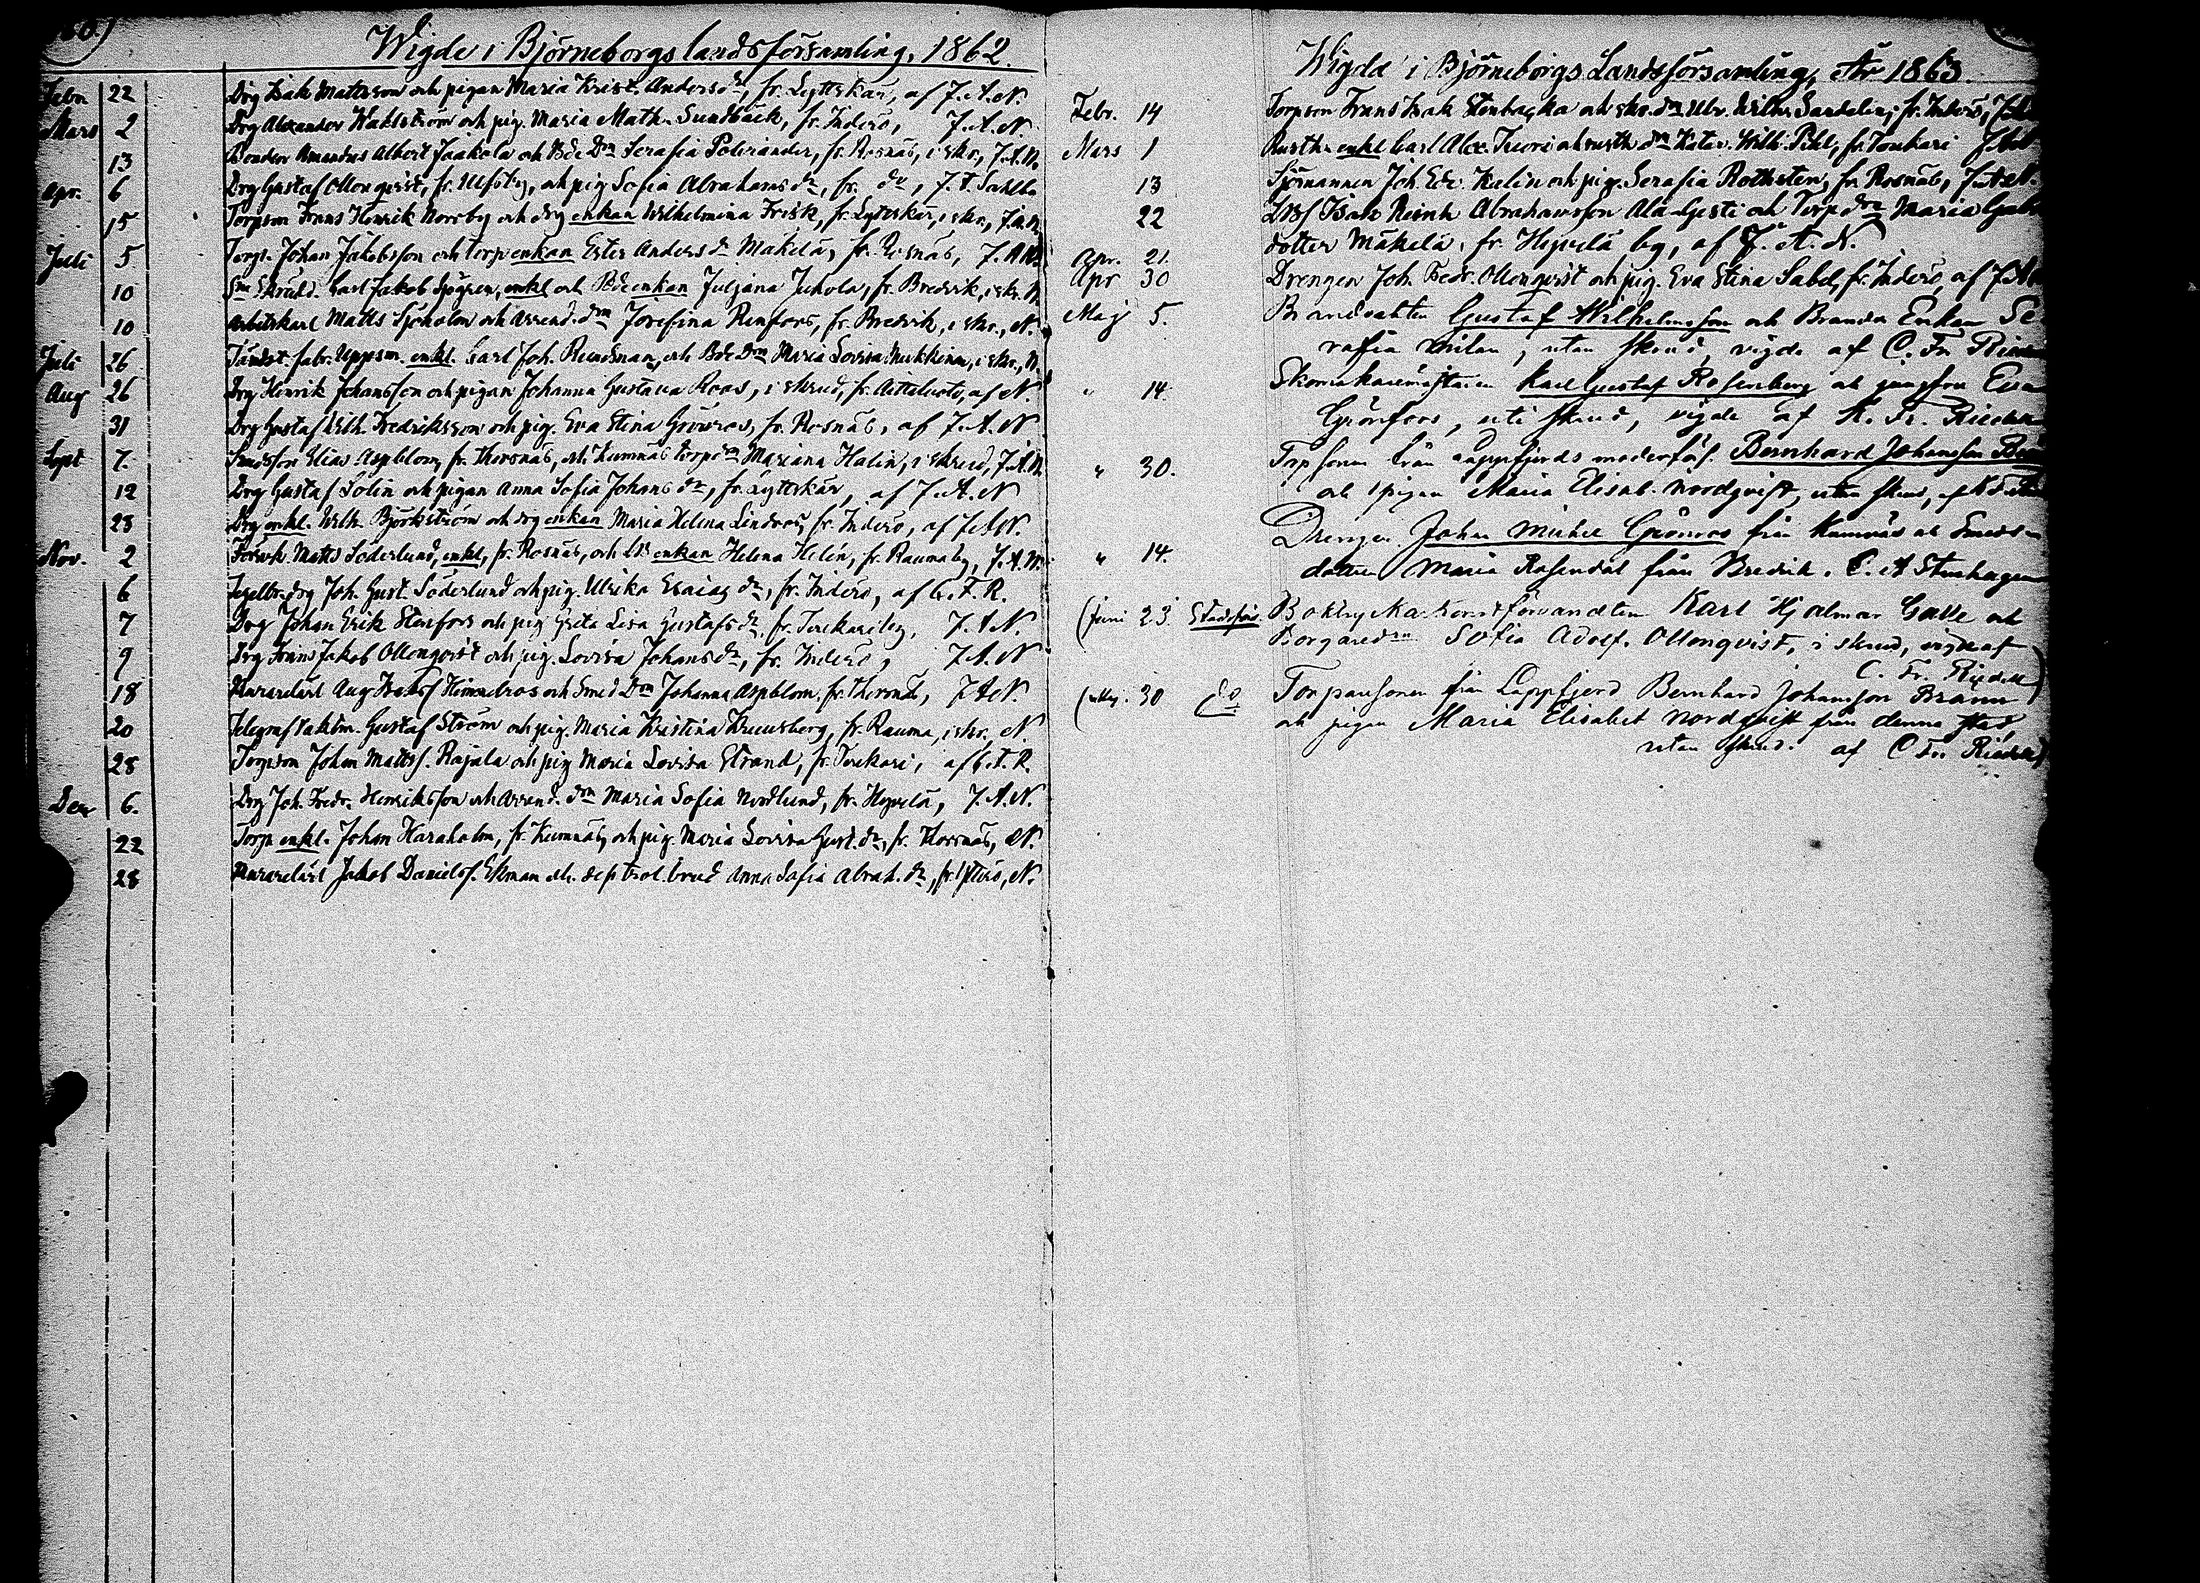 Wigde i Björneborgs landsförsamling, 1862.
Febr 22 Drg Isak Mattsson och pigan Maria Krist. Andersdr, fr. Lyttskär, af J.A.N.
Mars 2 Drg Alexander Wahlström och pig. Maria Math. Sundbäck, fr. Inderö, J.A.N.
13 Bonden Amandus Albert Jaakola och Bde Dn Serafia Polviander, fr. Rosnäs, i skr., J.A.N.
Apr. 6 Drg Gustaf Ollonqvist, fr. Ulfsby, och pig Sofia Abrahamsdr, fr. do, J. F. Sahlbo
15 Torpson Frans Henrik Norrby och drg enkan Wilhelmina Frisk, fr. Lyttskär, i skr., J.A.N.
Juli 5 Torp. Johan Jakobsson och torp enkan Ester Andersdr Mäkelä, fr. Rosnäs, J.A.N.
10 Carl Jakob Sjögren, enkl och Bde enkan Juljana Juhola, fr. Bredvik, i skr. N.
10 Arbetskarl Matts Sjöholm och arrend. dn Josefina Renfors, fr. Bredvik, i skr., N.
Juli 26 Tändst. fabr. Uppsm. enkl. Carl Joh. Rundman, och Bde Dn Maria Lovisa Nukkinen, i skr., N.
Aug 26 Drg Henrik Johansson och pigan Johanna Gustava Roos, i skrud, fr. Aitteluoto, af N.
31 Drg Gustaf Wilh. Fredriksson och pig. Eva Stina Grönroos, fr. Rosnäs, af J.A.N
Sept 7. Smedsson Elias Aspblom, fr. Thorsnäs, och Kumnäs torp dn Mariana Halin, i skrud, J.A.N.
12 Drg Gustaf Solin och pigan Anna Sofia Johansdr, fr. Lyttskär, af J.A.N
28 Drg enkl. Wilh. Björkström och drg enkan Maria Helena Lindroos, fr. Inderö, af J.A.N.
Nov. 2 Matts Söderlund, enkl, fr. Rosnäs, och enkan Helena Helin, fr. Raumaby, J.A.N.
6 Tegelbr. drg Joh. Gust. Söderlund och pig. Ulrika Esaiasdr, fr. Inderö, af C.F.R.
7 Drg Johan Erik Stenfors och pig Greta Lisa Gustafsdr, fr. Torkari by, J.A.N.
9 Drg Frans Jakob Ollonqvist och pig. Lovisa Johansdr, fr. Inderö, J.A.N
18 Murarelärl Aug Isaksf Himmelroos och Smed Dn Johanna Aspblom fr. Thorsnäs, J.A.N.
20 Telegraf vaktm. Gustaf Ström och pig. Maria Kristina Kreusberg, fr. Rauma, i skr., N.
28 Torpson Johan Mattss. Rajala och pig Maria Lovisa Strand, fr. Torkari, af C.F.R.
Dec 6. Drg Joh. Fredr. Henriksson och arrend. dn Maria Sofia Nordlund, fr. Hyvelä, J.A.N.
22 Torp enkl. Johan Haraholm, fr. Kumnäs, och pig. Maria Lovisa Gust. dr, fr. Thorsnäs, N.
28 Murarelärl Jakob Danielsf. Ekman och brud Anna Sofia Abrah. dr, fr. Ytterö, N.
Wigde i Björneborgs Landsförsamling, År 1863.
Febr. 14 Torpson Frans Isak Stenbacka och dn Ulr. Wilh. Sandelin, fr. Inderö,
Mars 1 Rusth. enkl Carl Alex. och rusth dn Katar. Wilh. Pihl, fr. Torkari
13 Sjömannen Joh. Edv. Kelin och pig. Serafia Rothsten, fr. Rosnäs, J.A.N.
22 Isak Reinh Abrahamsson Ala-Gesti och Torp dn Maria Gabr
dotter Mäkelä, fr. Hyvelä by, af J.A.N.
Apr. 21.
Apr 30 Drengen Joh. Fredr. Ollonqvist och pig. Eva Stina Sabel, fr. Inderö, af J.A.
Maj 5. Brandvakten Gustaf Wilhelmsson och Branda Enkan Se
rafia utan skrud, vigde af C. Fr. Rieden
" 14. Skomakaremästaren Karl Gustaf Rosenberg och jungfrun Eva
Grönfors, uti skrud, vigde af K. Fr. Rieden
" 30. Torpsonen från Lappfjerds moderförs. Bernhard Johansson Brä
och pigan Maria Elisab. Nordqvist, utan skrud, af
" 14. Drengen Johan Mickel Grönroos från Kumnäs och Smeds-
dottren Maria Rosendal från Bredvik. C. A Stenhagen
(Juni 23 Stadsförs. Boktryckarkonstförvandten Karl Hjalmar Galle och
Borgaredn Sofia Adolf. Ollonqvist, i skrud, vigde af
C. Fr. Rieden)
30 do Torparsonen från Lappfjerd Bernhard Johansson Bränn
och pigan Maria Elisabet Nordqvist från denna stad
utan skrud. af C Fr. Rieden)